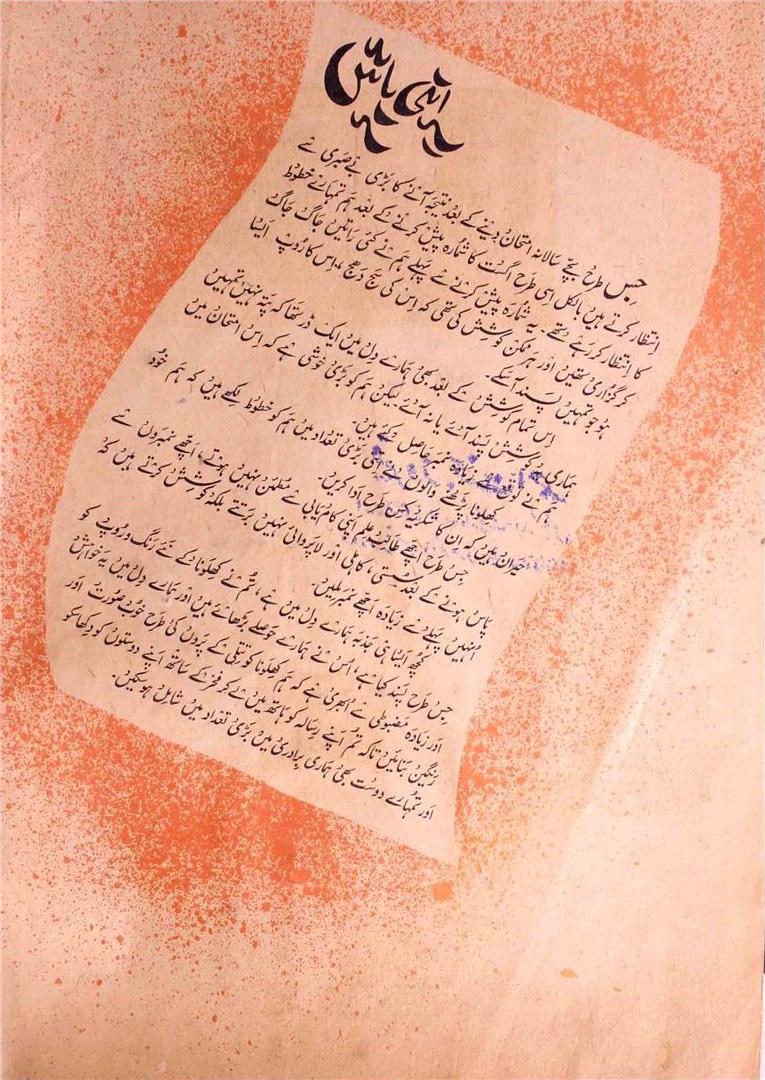 اپنی باتیں
جس طرح بچے سالانہ امتحان دینے کے بعد نتیجہ آنے کا بڑی بے صبری سے
انتظار کرتے ہیں بالکل اسی طرح اگست کا شمارہ پیش کرنے کے بعد ہم تمہارے خطوط
کا انتظار کر رہے تھے۔ یہ شمارہ پیش کرنے سے پہلے ہم نے کئی راتیں جاگ جاگ
کر گزاری تھیں اور ہر ممکن کوشش کی تھی کہ اس کی سج دھج، اس کا روپ ایسا
ہو جو تمہیں پسند آسکے۔
اس تمام کوشش کے بعد بھی ہمارے دل میں ایک ڈر تھا کہ پتہ نہیں تمہیں
ہماری یہ کوشش پسند آئے یا نہ آئے لیکن ہم کو بڑی خوشی ہے کہ اس امتحان میں
ہم نے زیادہ نمبر حاصل کئے ہیں۔
کھلونا پڑھنے والوں نے اتنی بڑی تعداد میں ہم کو خطوط لکھے ہیں کہ ہم خود
حیران ہیں کہ ان کا شکریہ کس طرح ادا کریں۔
جس طرح اچھے طالب علم اپنی کامیابی سے مطمئن نہیں ہوتے، اچھے نمبروں سے
پاس ہونے کے بعد سستی، کاہلی اور لاپروائی نہیں برتتے بلکہ کوشش کرتے ہیں کہ
انہیں پہلے سے زیادہ اچھے نمبر ملیں۔
کچھ ایسا ہی جذبہ ہمارے دل میں ہے، تم نے کھلونا کے نئے رنگ و روپ کو
جس طرح پسند کیا ہے، اس نے ہمارے حوصلے بڑھائے ہیں اور ہمارے دل میں یہ خواہش
اور زیادہ مضبوطی سے ابھری ہے کہ ہم کھلونا کو تتلی کے پروں کی طرح خوب صورت اور
رنگین بنائیں تاکہ تم اپنے رسالہ کو ہاتھ میں لے کر فخر کے ساتھ اپنے دوستوں کو دکھا سکو
اور تمہارے دوست بھی ہماری برادری میں بڑی تعداد میں شامل ہو سکیں۔